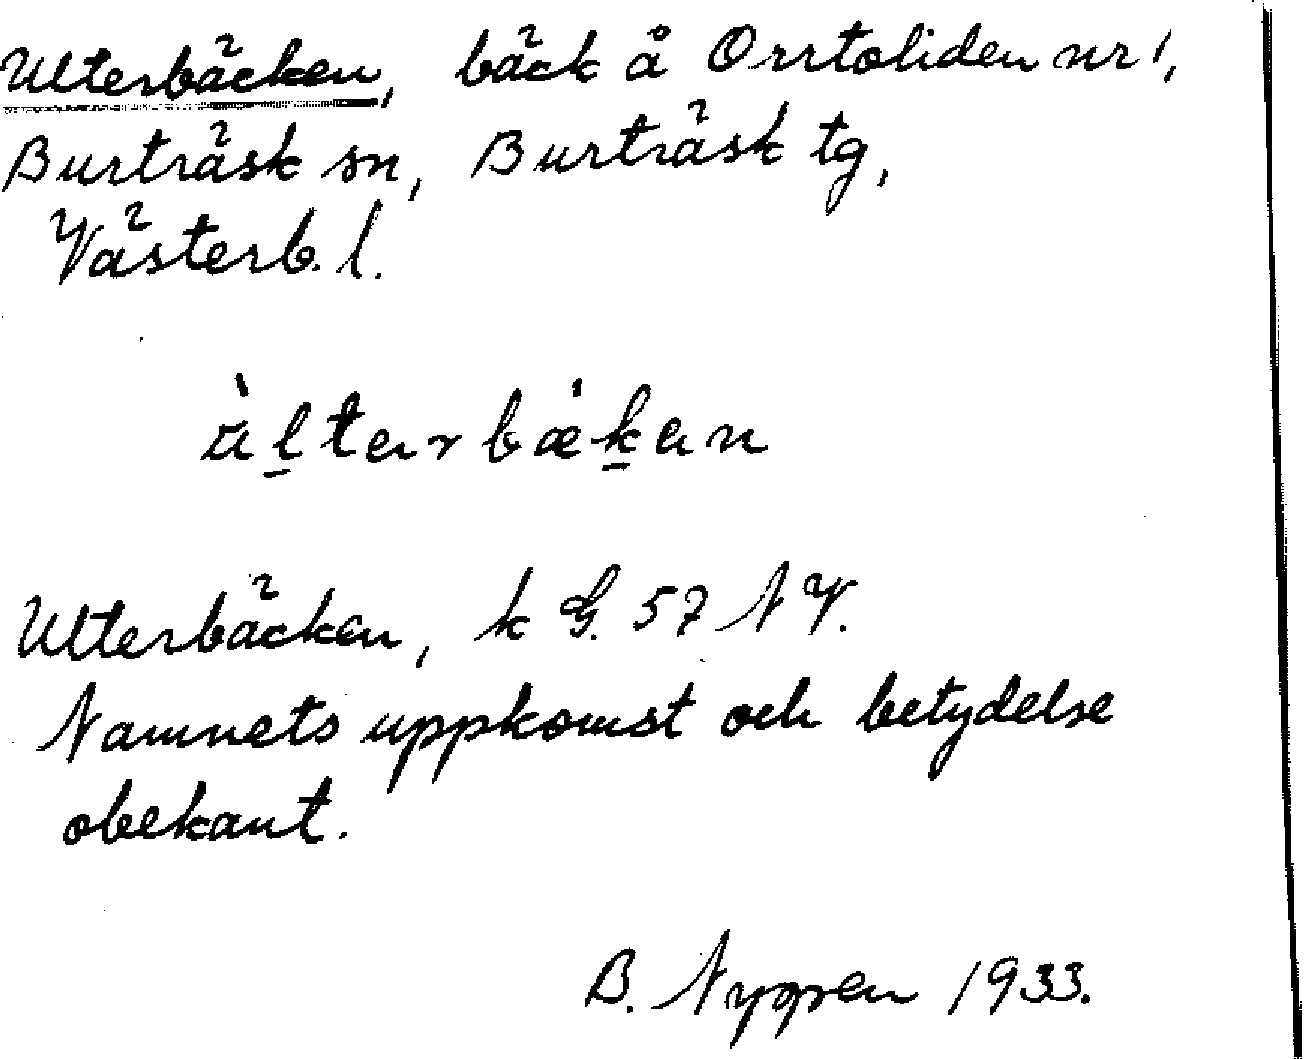 Utterbäcken, bäck å Orrtoliden nr 1,
Burträsk sn, Burträsk tg,
Västerb. l.
Utterbäcken, k G. 57 N V.
Namnets uppkomst och betydelse
obekant.
B. Nygren 1933.